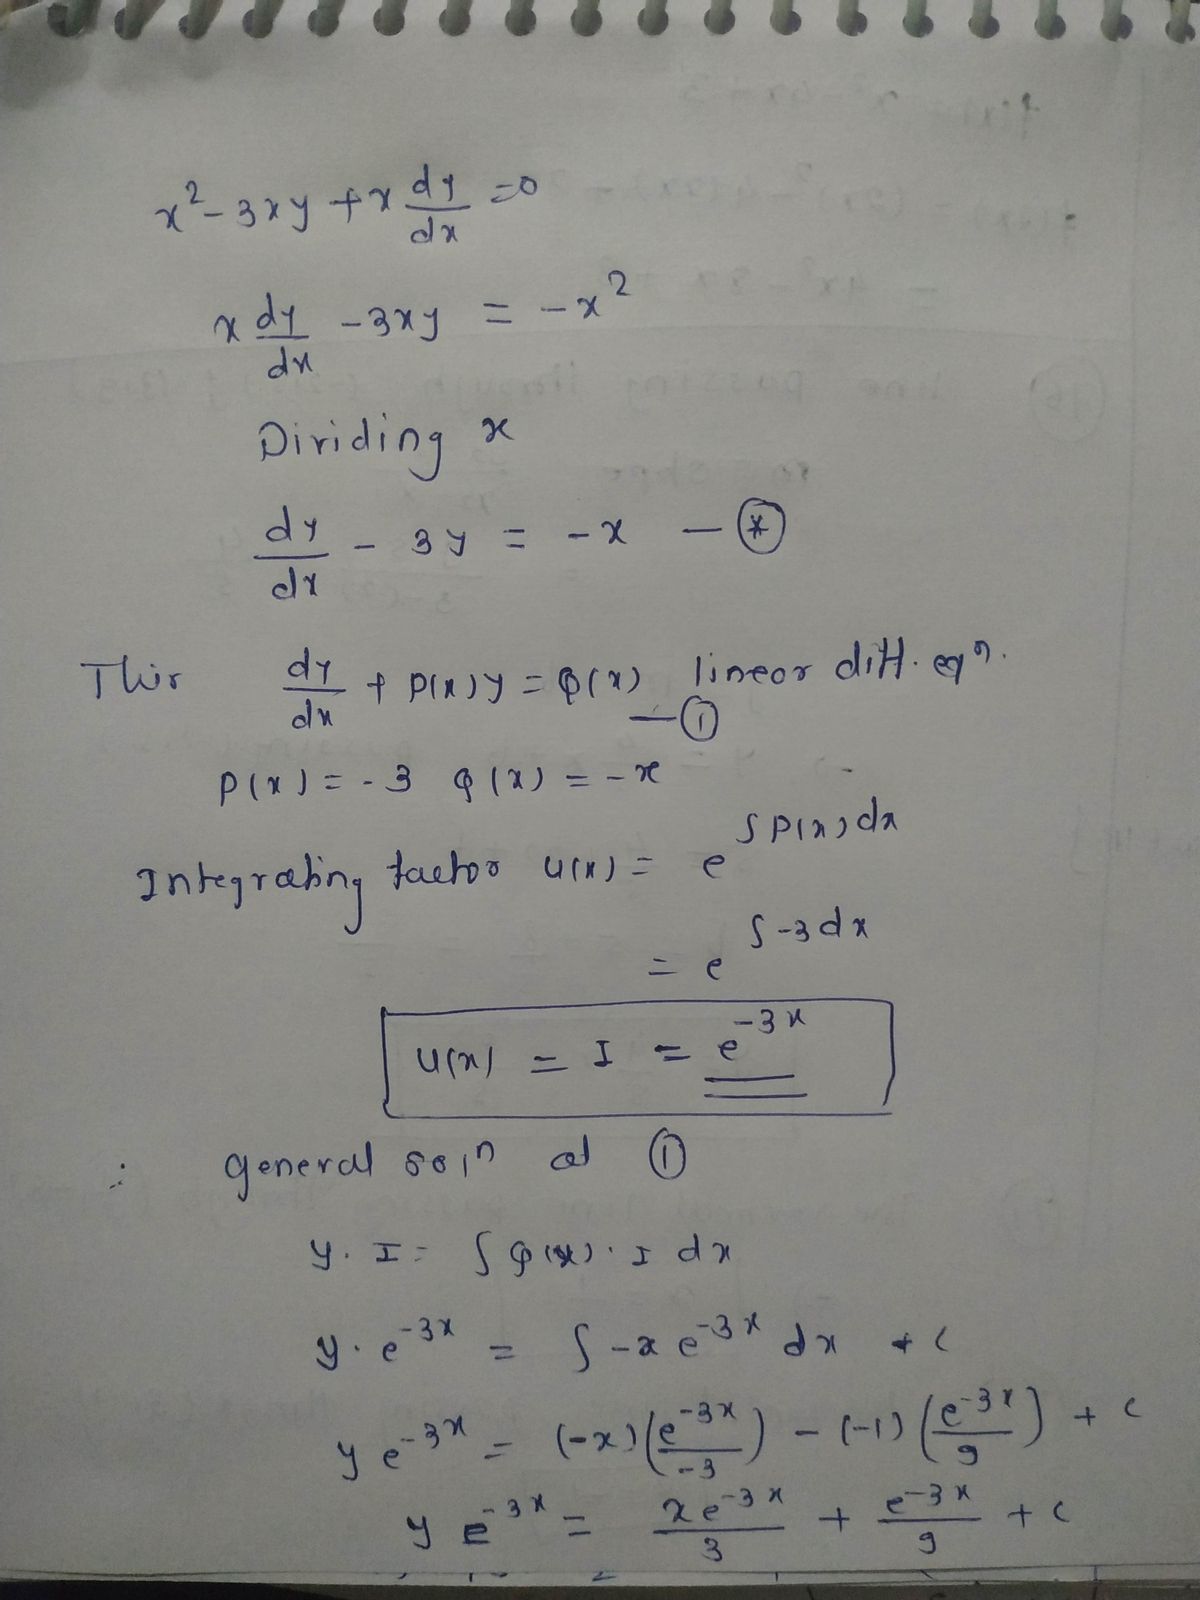 x² - 3xy + x dy/dx = 0
x dy/dx - 3xy = -x²
Dividing x
dy/dx - 3y = -x — (*)
This dy/dx + P(x)y = Q(x) linear diff. eqn.
— (1)
P(x) = -3 Q(x) = -x
Integrating factor u(x) = e^∫P(x)dx
= e^∫-3dx
u(x) = I = e^-3x
∴ general soln of (1)
y. I = ∫Q(x). I dx
y. e^-3x = ∫-x e^-3x dx + c
y e^-3x = (-x)(e^-3x/-3) - (-1)(e^-3x/9) + c
y e^-3x = xe^-3x/3 + e^-3x/9 + c